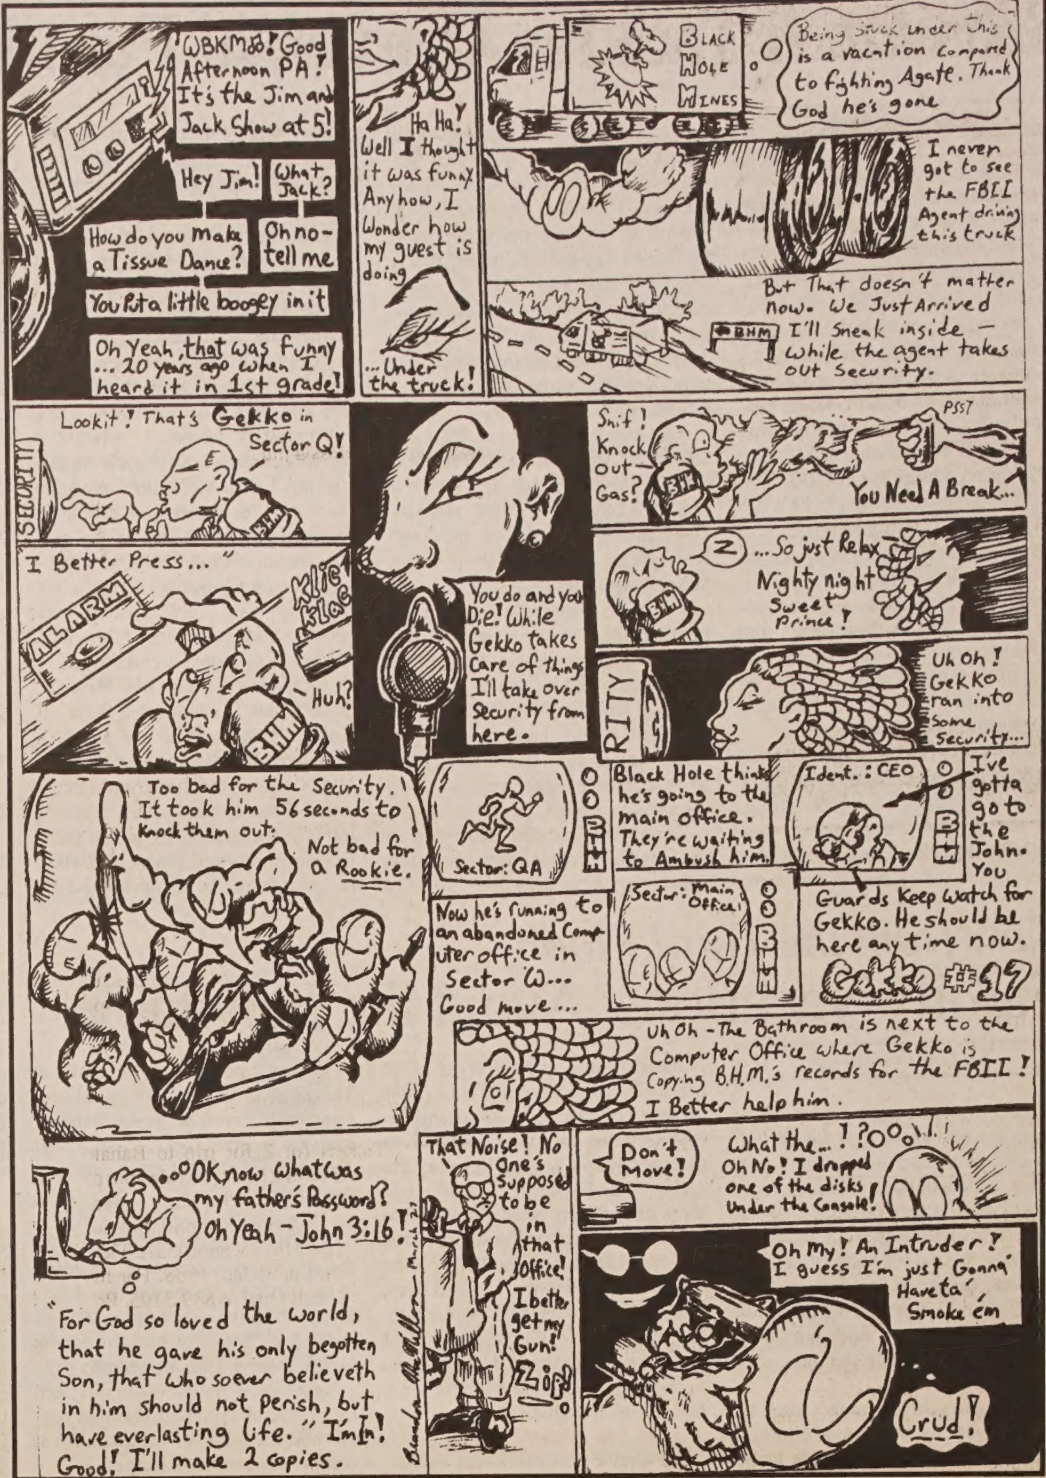 WBKM 88! Good
Afternoon PA!
It's the Jim and
Jack Show at 5!
Hey Jim!
What
Jack?
How do you make
a Tissue Dance?
Oh no-
tell me
You Put a little boogey in it
Oh Yeah, that was funny
... 20 years ago when I
heard it in 1st grade!
Ha Ha!
Well I thought
it was funny.
Anyhow, I
Wonder how
my guest is
doing
... Under
the truck!
BLACK
HOLE
MINES
Being stuck under this
is a vacation compared
to fighting Agate. Thank
God he's gone
I never
got to see
the FBII
Agent driving
this truck
But That doesn't matter
now. We Just Arrived
I'll Sneak inside —
while the agent takes
out Security.
BHM
Lookit! That's Gekko in
Sector Q!
SECURITY
BHM
"I Better Press..."
ALARM
Klic
Klac
Huh?
BHM
You do and you
Die! While
Gekko takes
Care of things
I'll take over
Security from
here.
Snif!
Knock
out
Gas?
BHM
PSST
You Need A Break...
Z
...So just Relax
Nighty night
Sweet
Prince!
BHM
RITY
Uh Oh!
Gekko
ran into
some
security...
Too bad for the Security.
It took him 56 seconds to
Knock them out.
Not bad for
a Rookie.
Sector: QA
BHM
Black Hole thinks
he's going to the
main Office.
They're waiting
to Ambush him.
Ident.: CEO
BHM
I've
gotta
go to
the
John.
You
Guards Keep Watch for
Gekko. He should be
here any time now.
Now he's running to
an abandoned Comp-
uter office in
Sector W...
Good move...
Sector: Main
Office
BHM
Gekko #17
Uh Oh - The Bathroom is next to the
Computer Office where Gekko is
Copying B.H.M.'s records for the FBII!
I Better help him.
OK, now what was
my father's Password?
Oh Yeah - John 3:16!
"For God so loved the world,
that he gave his only begotten
Son, that who soever believeth
in him should not perish, but
have everlasting life." I'm In!
Good! I'll make 2 copies.
That Noise! No
One's
Supposed
to be
in
that
Office!
I better
get my
Gun!
Zip!
March 27
Don't
Move!
What the...!?
Oh No! I dropped
one of the disks
Under the Console!
Oh My! An Intruder!
I guess I'm just Gonna
Have ta'
Smoke 'em
Crud!